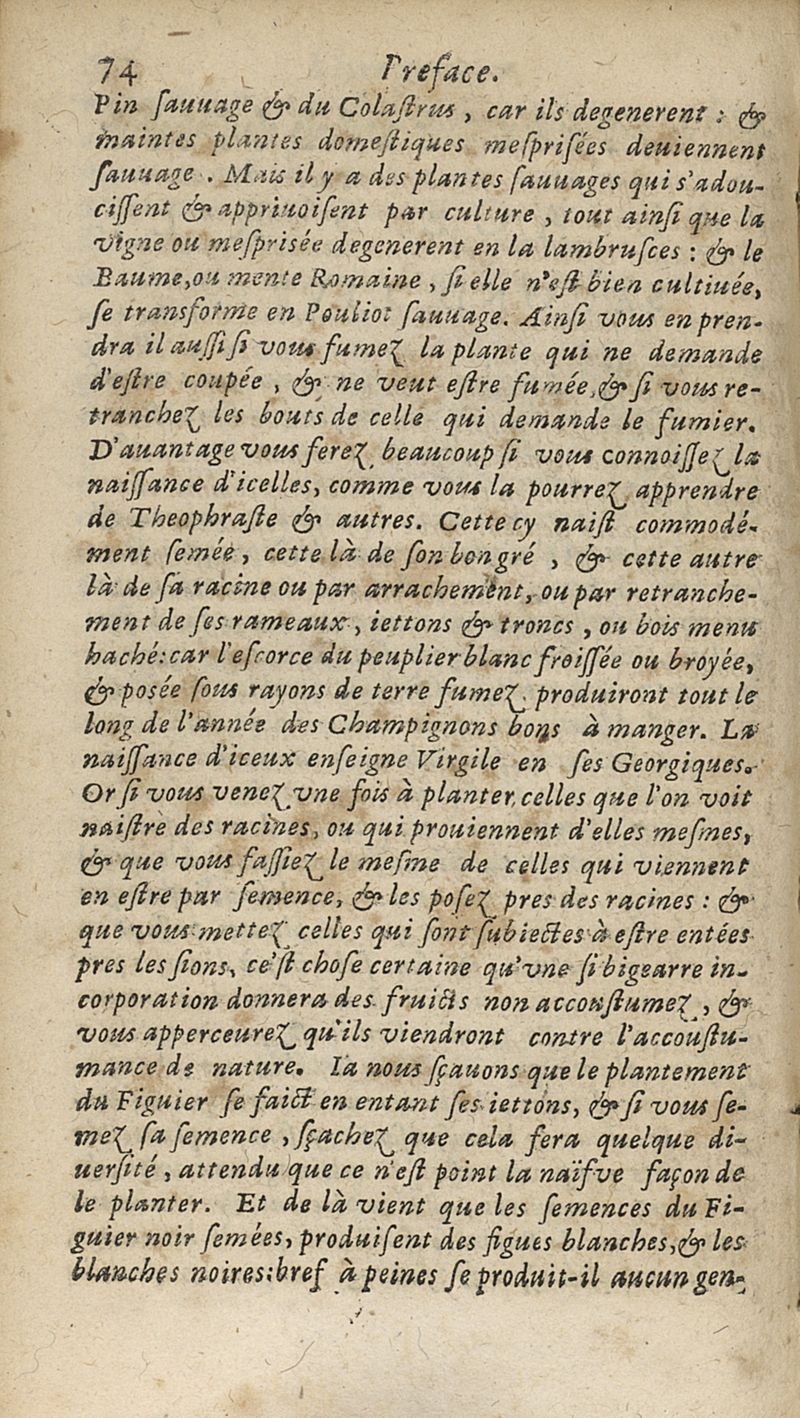 74 Preface.
Pin ſauuage & du Colaſtrus, car ils degenerent : &
maintes plantes domeſtiques meſpriſées deuiennent
ſauuage. Mais il y a des plantes ſauuages qui s'adou-
ciſſent & appriuoiſent par culture, tout ainſi que la
vigne ou meſprisée degenerent en la lambruſces : & le
Baume, ou mente Romaine, ſi elle n'eſt bien cultiuée,
ſe transforme en Pouliot ſauuage. Ainſi vous en pren-
dra il auſſi ſi vous fumez la plante qui ne demande
d'eſtre coupée, & ne veut eſtre fumée, & ſi vous re-
tranchez les bouts de celle qui demande le fumier.
D'auantage vous ferez beaucoup ſi vous connoiſſez la
naiſſance d'icelles, comme vous la pourrez apprendre
de Theophraſte & autres. Cette cy naiſt commodé-
ment ſemée, cette là de ſon bon gré, & cette autre
là de ſa racine ou par arrachement, ou par retranche-
ment de ſes rameaux, iettons & troncs, ou bois menu
haché: car l'eſcorce du peuplier blanc froiſſée ou broyée,
& poſée ſous rayons de terre fumez produiront tout le
long de l'année des Champignons bons à manger. La
naiſſance d'iceux enſeigne Virgile en ſes Georgiques.
Or ſi vous venez vne fois à planter celles que l'on voit
naiſtre des racines, ou qui prouiennent d'elles meſmes,
& que vous faſſiez le meſme de celles qui viennent
en eſtre par ſemence, & les poſez pres des racines : &
que vous mettez celles qui ſont ſubiectes à eſtre entées
pres les ſions, ce'ſt choſe certaine qu'vne ſi bigearre in-
corporation donnera des fruicts non accouſtumez, &
vous apperceurez qu'ils viendront contre l'accouſtu-
mance de nature. Ia nous ſçauons que le plantement
du Figuier ſe faict en entant ſes iettons, & ſi vous ſe-
mez ſa ſemence, ſçachez que cela fera quelque di-
uerſité, attendu que ce n'eſt point la naïfve façon de
le planter. Et de là vient que les ſemences du Fi-
guier noir ſemées, produiſent des figues blanches, & les
blanches noires: bref à peines ſe produit-il aucun gen-